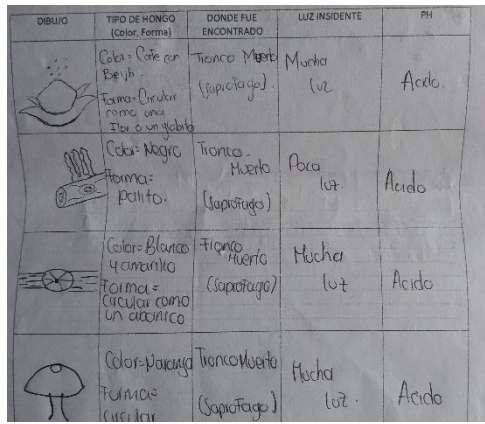 DIBUJO
TIPO DE HONGO
(Color, Forma)
DONDE FUE
ENCONTRADO
LUZ INSIDENTE
PH
Color= Cafe con
Beyh.
Forma= Circular
como una
flor o un globito
Tronco Muerto
(saprofago).
Mucha
luz
Acido.
Color= Negro
Forma=
palito.
Tronco.
Muerto
(saprofago)
Poca
luz.
Acido
Color= Blanco
y amarillo
Forma=
Circular como
un abanico
Tronco
Muerto
(saprofago)
Mucha
luz
Acido
Color= Naranja
Forma=
circular
Tronco Muerto
(saprofago)
Mucha
luz.
Acido